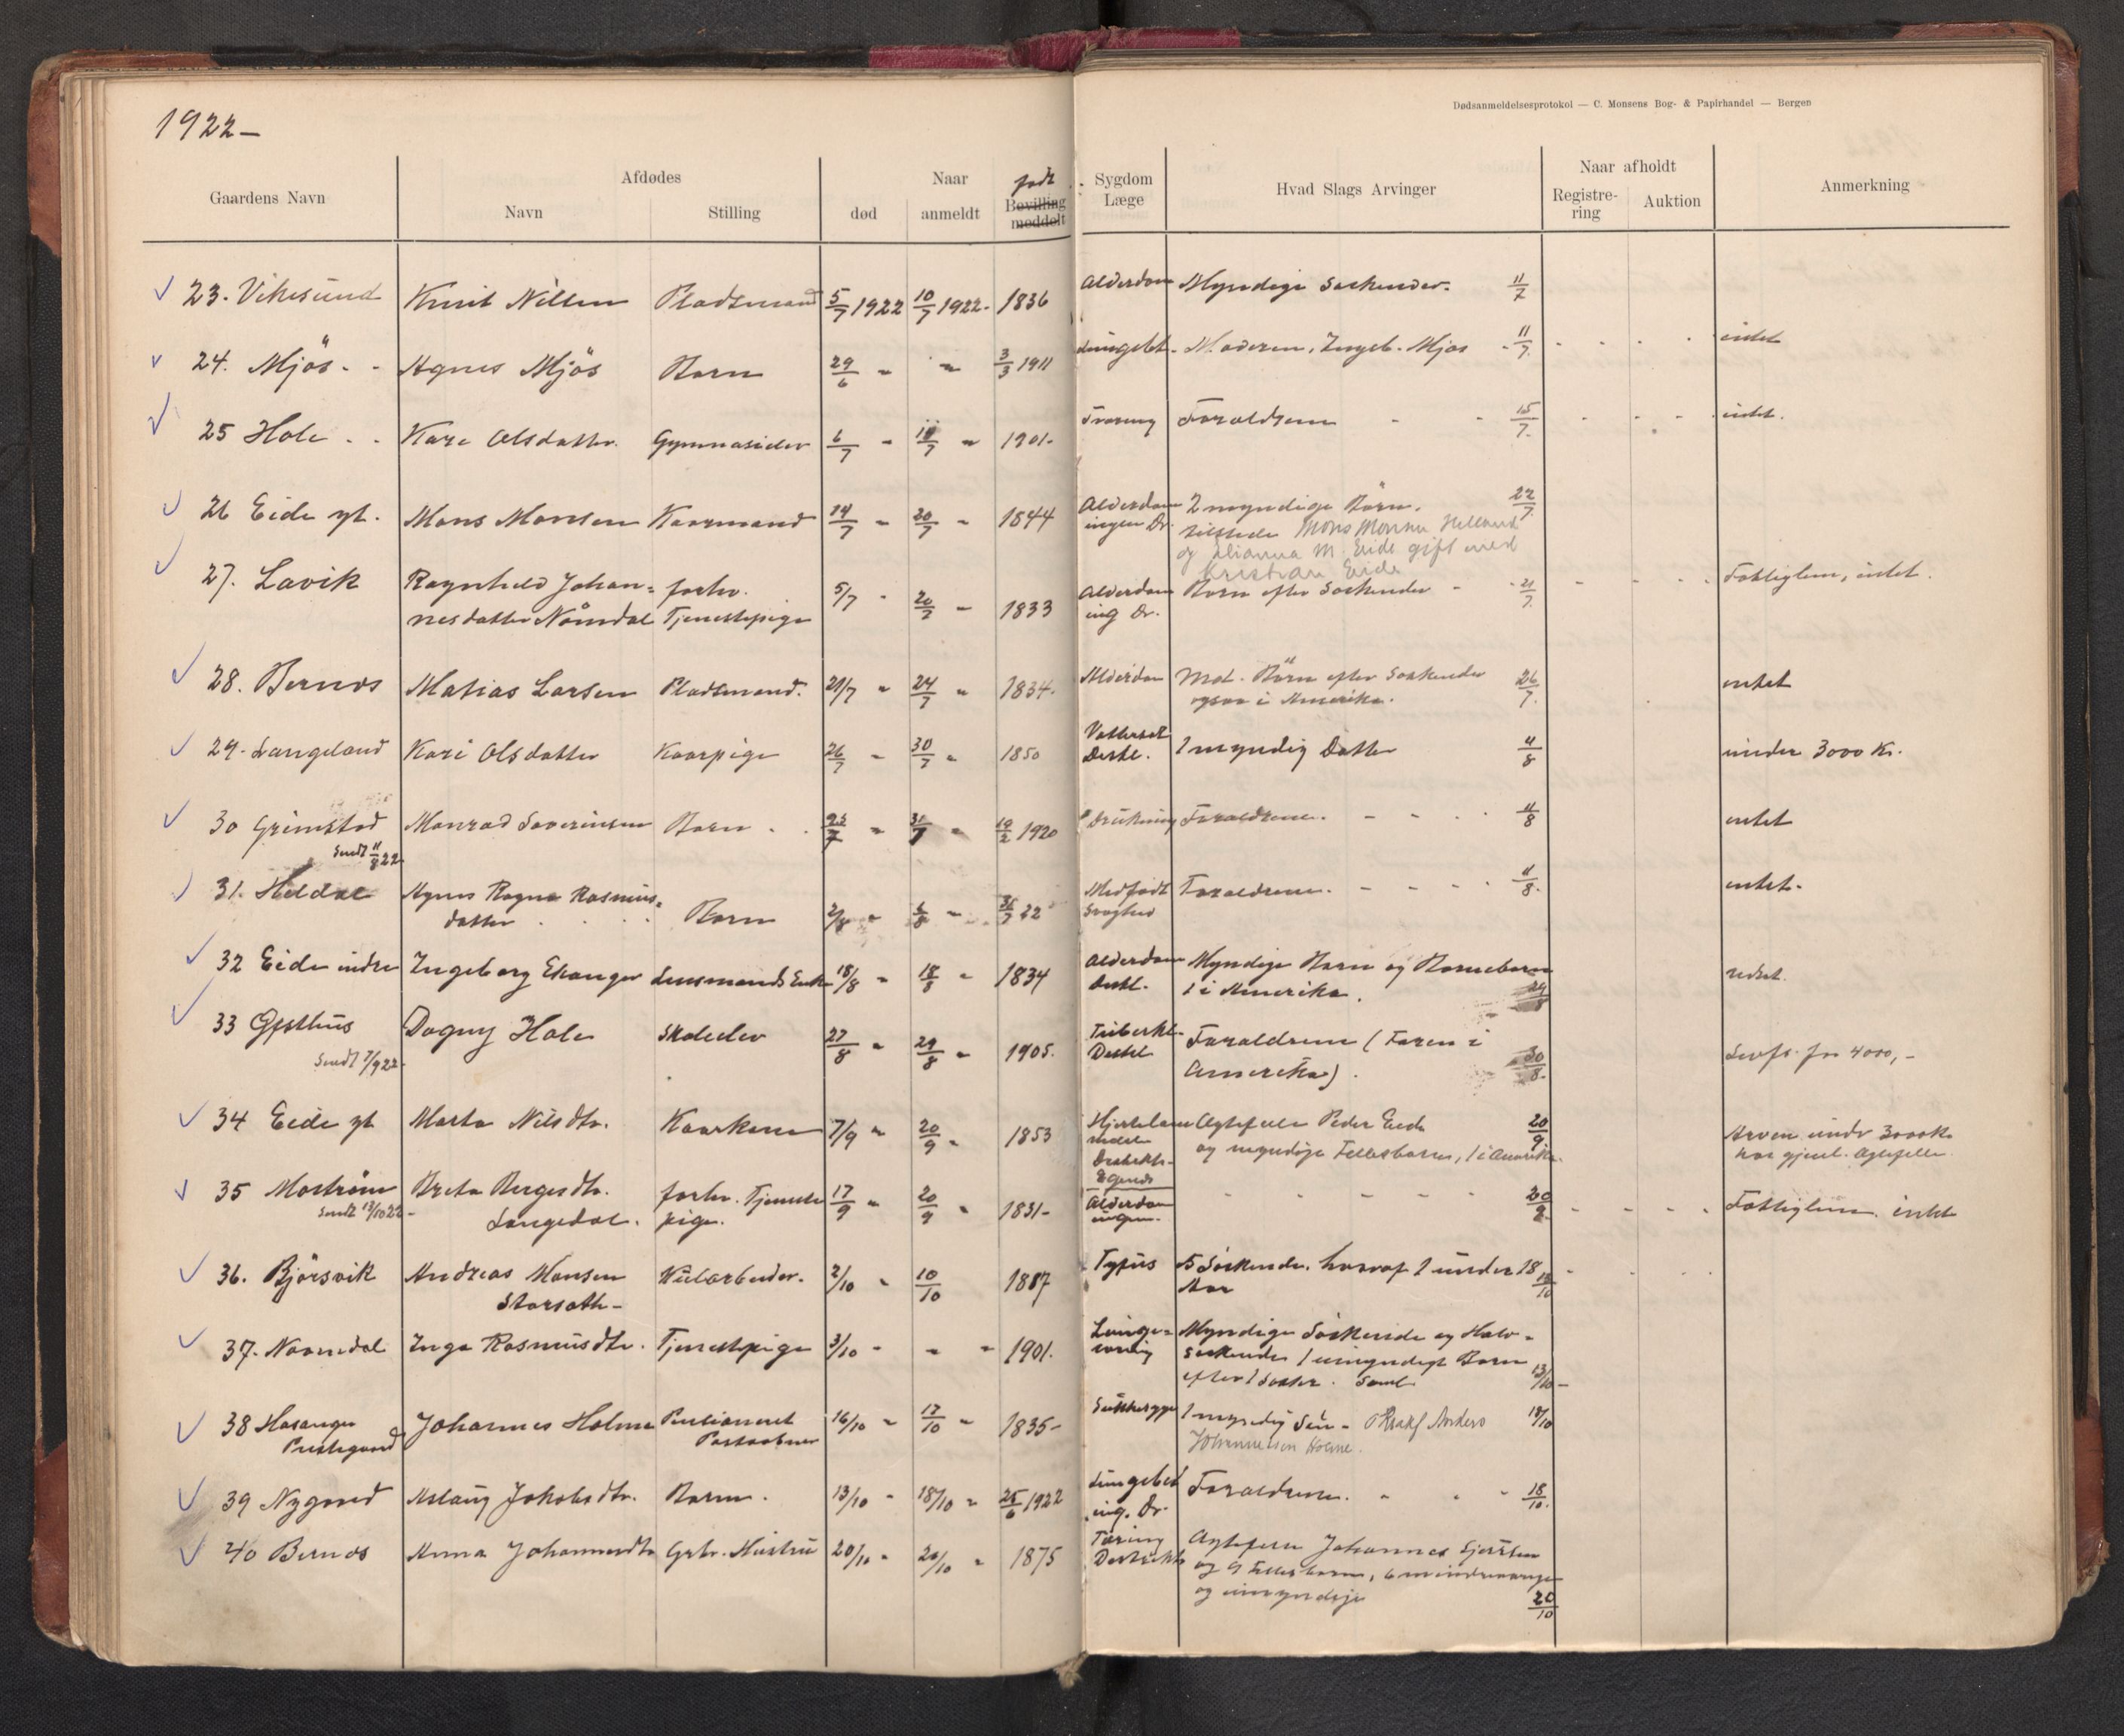 1922 –
Dødsanmeldelsesprotokol — C. Monsens Bog- & Papirhandel — Bergen
Gaardens Navn
Afdødes
Navn
Stilling
Naar
død
anmeldt
født
Bevilling
meddelt
Sygdom
Læge
Hvad Slags Arvinger
Naar afholdt
Registre-
ring
Auktion
Anmerkning
23. Vikesund Knut Nilsen Pladsmand 5/7 1922 10/7 1922 - 1836 Alderdom Myndige Søskender. 11/7
24. Mjös - - Agnes Mjös Barn 29/6 " " 3/3 1911 Lungebet. Moderen, Ingeb. Mjøs - 11/7 intet
25 Hole - - Kare Olsdatter Gymnasielev 6/7 - 10/7 " 1901- Tæring Forældrene - - 15/7 intet.
26 Eide yt. Mons Monsen Kaarmand 14/7 " 20/7 - 1844 Alderdom 2 myndige Börn. 22/7
ingen Dr. tilstede Mons Monsen Helland
og M. Eide gift med
Kristian Eide
27. Lavik Ragnhild Johan- forhv. 5/7 - 20/7 - 1833 Alderdom Børn efter Søskender - - 21/7 Fattiglem, intet.
nesdatter Nåmdal Tjenestepige ing Dr.
28. Bernes Matias Larsen Pladsmand. 21/7 " 24/7 " 1834. Alderdom Mod. Börn efter Søskender 26/7 intet
ogsaa i Amerika.
29. Langeland Kari Olsdatter Kaarpige 26/7 - 30/7 " 1850 1 myndig Datter 4/8 under 3000 Kr.
30 Grimstad Monrad Severinsen Barn - - 7 " 31/7 " 19/2 1920 Drukning Forældrene. - - - 11/8 intet
Sendt 11/8 22
31. Heldal Agnes Ragna Rasmus- Medfødt Forældrene. - - - 11/8 intet.
datter Barn 2/8 " 8 " 7 22 Svaghed
32 Eide indre Ingeborg Ekanger Lensmands Enke 18/8 " 18/8 " 1834 Alderdom Myndige Barn og Barnebarn intet.
Distl. 1 i Amerika. 8
33 Gjesthus Dagny Hole Skoleelev 27/8 " 29/8 " 1905. Tuberkl. Forældrene (Faren i
Sendt 7/9 22 - Distl Amerika). 30/8 for 4000,-
34 Eide yt Marta Nilsdtr. Kaarkone 7/9 " 20/9 " 1853 Ægtefelle Peder Eide 20/9 Arven under 3000 Kr
og myndige Fellesbarn, 1 i Amerika. har gjenl. Ægtefelle
35 Mostrøm Brita Bergesdtr. forhv. Tjeneste 17/9 " 20/9 " 1831 - Alderdom - - - - 20/9 Fattiglem. intet
Sendt 13/10 22 - Langedal. pige. ingen.
36. Bjørsvik Andreas Monsen arbeider. 2/10 " 10/10 1887 Tyfus 5 Søskende. hvoraf 1 under 18
Storsæth - Aar 10
37. Naamdal Inga Rasmusdtr. Tjenestepige 3/10 - " " 1901. Lunge- Myndige Søskende og Halv-
søskende 1 umyndigt Barn
efter 1 Søster. Samt 13/10 -
38 Hosanger Johannes Holme Pensioneret 16/10 " 17/10 " 1835 - Sukkersyge 1 myndig Søn - Anders 18/10
Prestegaard Postaabner Johannessen Holme.
39 Nygard Aslaug Jakobsdtr. Barn. 13/10 - 18/10 " 25/6 1922 Lungebet Forældrene. - - - 18/10
ing. Dr.
40 Bernes Anna Johannesdtr Grbr. Hustru 20/10 " 20/10 " 1875 Tæring Ægtefelle Johannes
Distrikts og 9 Fellesbarn, 6 mindreaarige
og umyndige 20/10